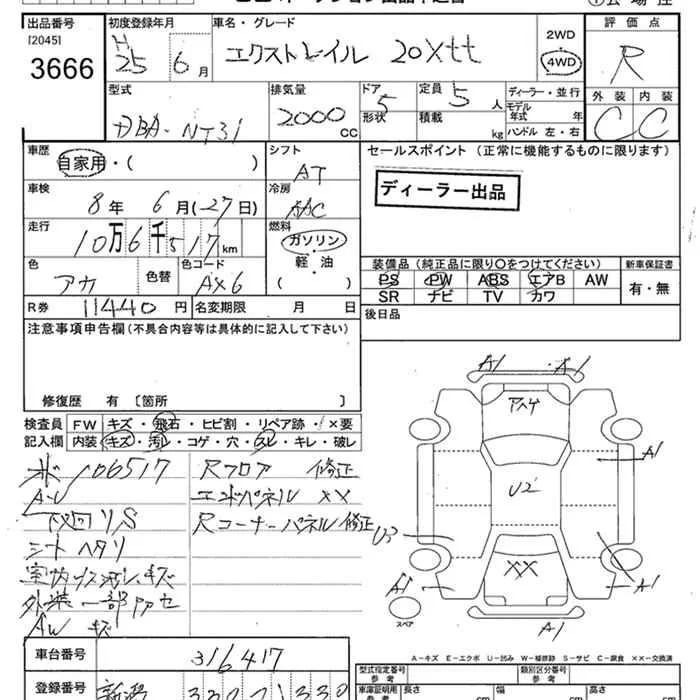 出品番号 初度登録年月 車名・グレード 評価点
[2045] H 2WD
3666 25 6月 エクストレイル 20Xtt 4WD R
型式 排気量 ドア 定員 ディーラー・並行 外装 内装
DBA-NT31 2000 CC 5 5人 モデル年式 年 C C
形状 積載 kg ハンドル 左・右
車歴 シフト セールスポイント (正常に機能するものに限ります)
自家用・( ) AT
車検 冷房 ディーラー出品
8年 6月(27日) AAC
走行 燃料
10万6千517km ガソリン
色 色替 色コード 軽・油 装備品 (純正品に限り〇をつけてください) 新車保証書
アカ AX6 ( ) PS PW ABS エアB AW 有・無
R券 11440円 名変期限 月 日 SR ナビ TV カワ
注意事項申告欄(不具合内容等は具体的に記入して下さい) 後日品
修復歴 有 〔箇所
A1 A1
検査員 FW キズ・飛石・ヒビ割・リペア跡・×要
記入欄 内装 キズ・汚レ・コゲ・穴・スレ・キレ・破レ
106517 Rフロア 修正 A1
エンドパネル ×× U2
下廻りS Rコーナーパネル修正 U3
シートヘタリ
キズ ××
外装一部 A1 A1
AW キズ スペア A1
A-キズ E-エクボ U-凹み W-補修跡 S-サビ C-腐食 ××-交換済
車台番号 316417 型式指定番号 類別区分番号
参考 参考
登録番号 新潟 車庫証明用 長さ 幅 高さ
参考 cm cm cm